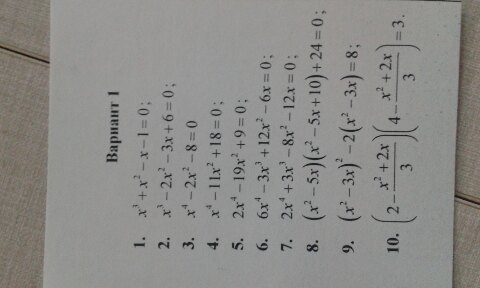 Вариант 1
1. x³ + x² − x − 1 = 0;
2. x³ − 2x² − 3x + 6 = 0;
3. x⁴ − 2x² − 8 = 0
4. x⁴ − 11x² + 18 = 0;
5. 2x⁴ − 19x² + 9 = 0;
6. 6x⁴ − 3x³ + 12x² − 6x = 0;
7. 2x⁴ + 3x³ − 8x² − 12x = 0;
8. (x² − 5x)(x² − 5x + 10) + 24 = 0;
9. (x² − 3x)² − 2(x² − 3x) = 8;
10. (2 − (x² + 2x)/3)(4 − (x² + 2x)/3) = 3.